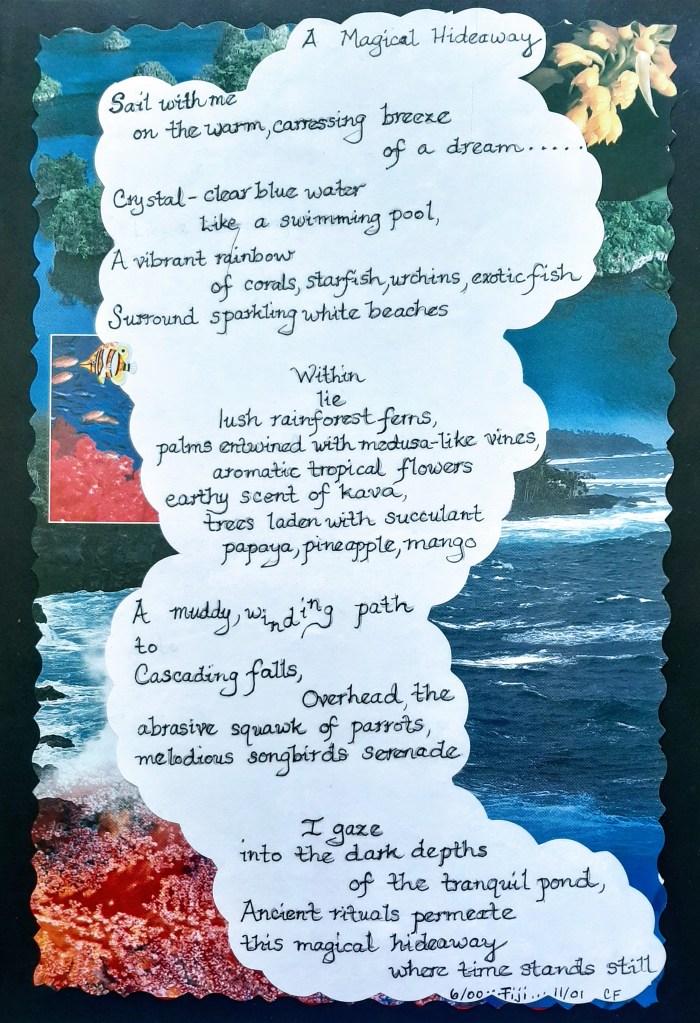 A Magical Hideaway
Sail with me
on the warm, carressing breeze
of a dream.....
Crystal-clear blue water
Like a swimming pool,
A vibrant rainbow
of corals, starfish, urchins, exotic fish
Surround sparkling white beaches
Within
lie
lush rainforest ferns,
palms entwined with medusa-like vines,
aromatic tropical flowers
earthy scent of kava,
trees laden with succulant
papaya, pineapple, mango
A muddy, winding path
to
Cascading falls,
Overhead, the
abrasive squawk of parrots,
melodious songbirds serenade
I gaze
into the dark depths
of the tranquil pond,
Ancient rituals permeate
this magical hideaway
where time stands still
6/00...Fiji...11/01 CF